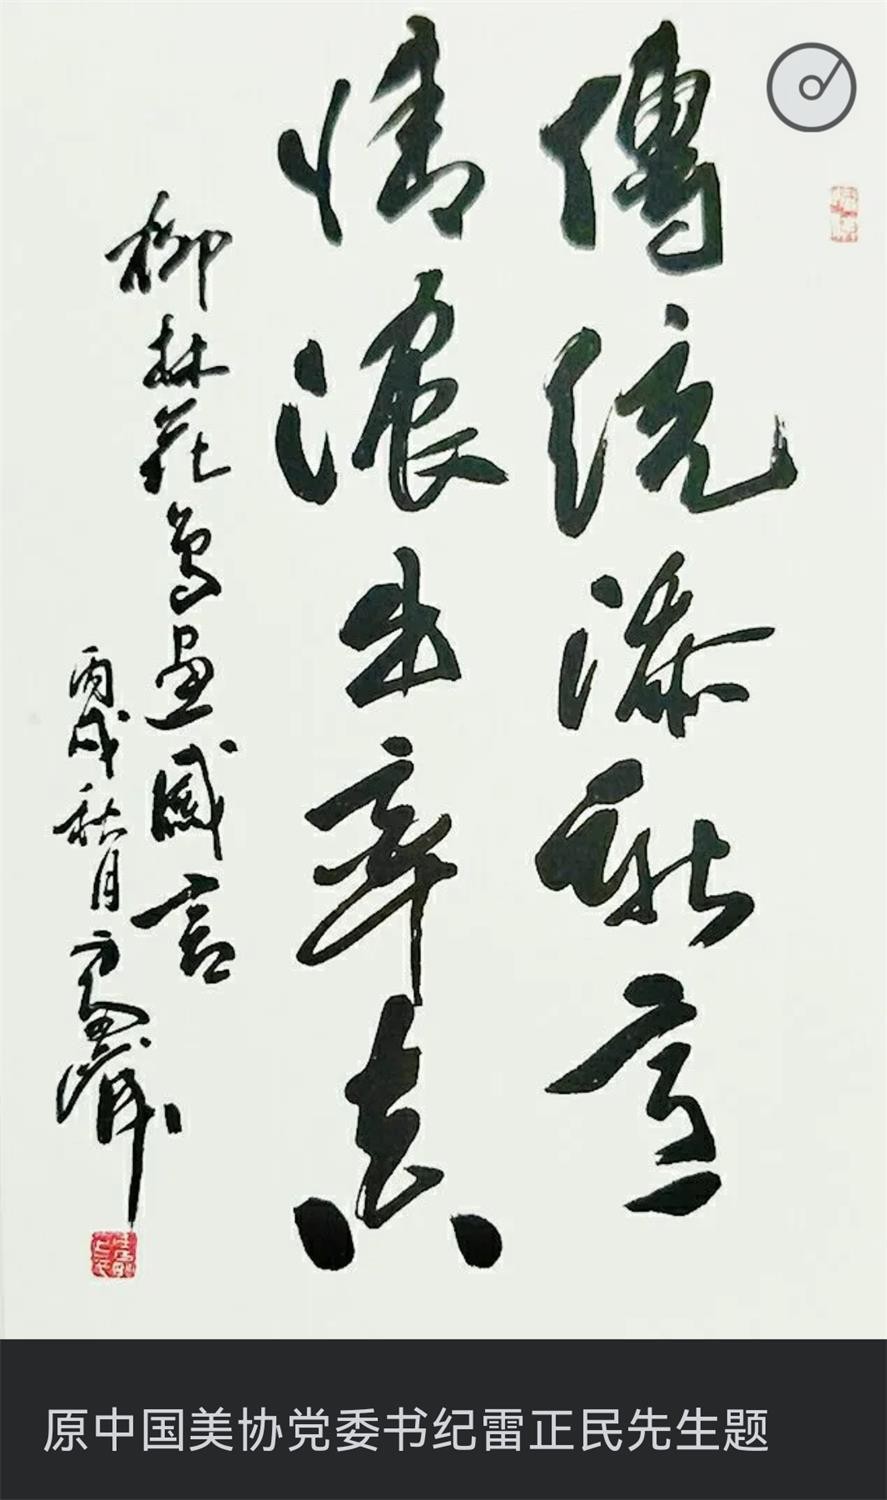 傳統添新意
情濃出率真
柳林花鳥畫感言
丙戌秋月
原中国美协党委书纪雷正民先生题